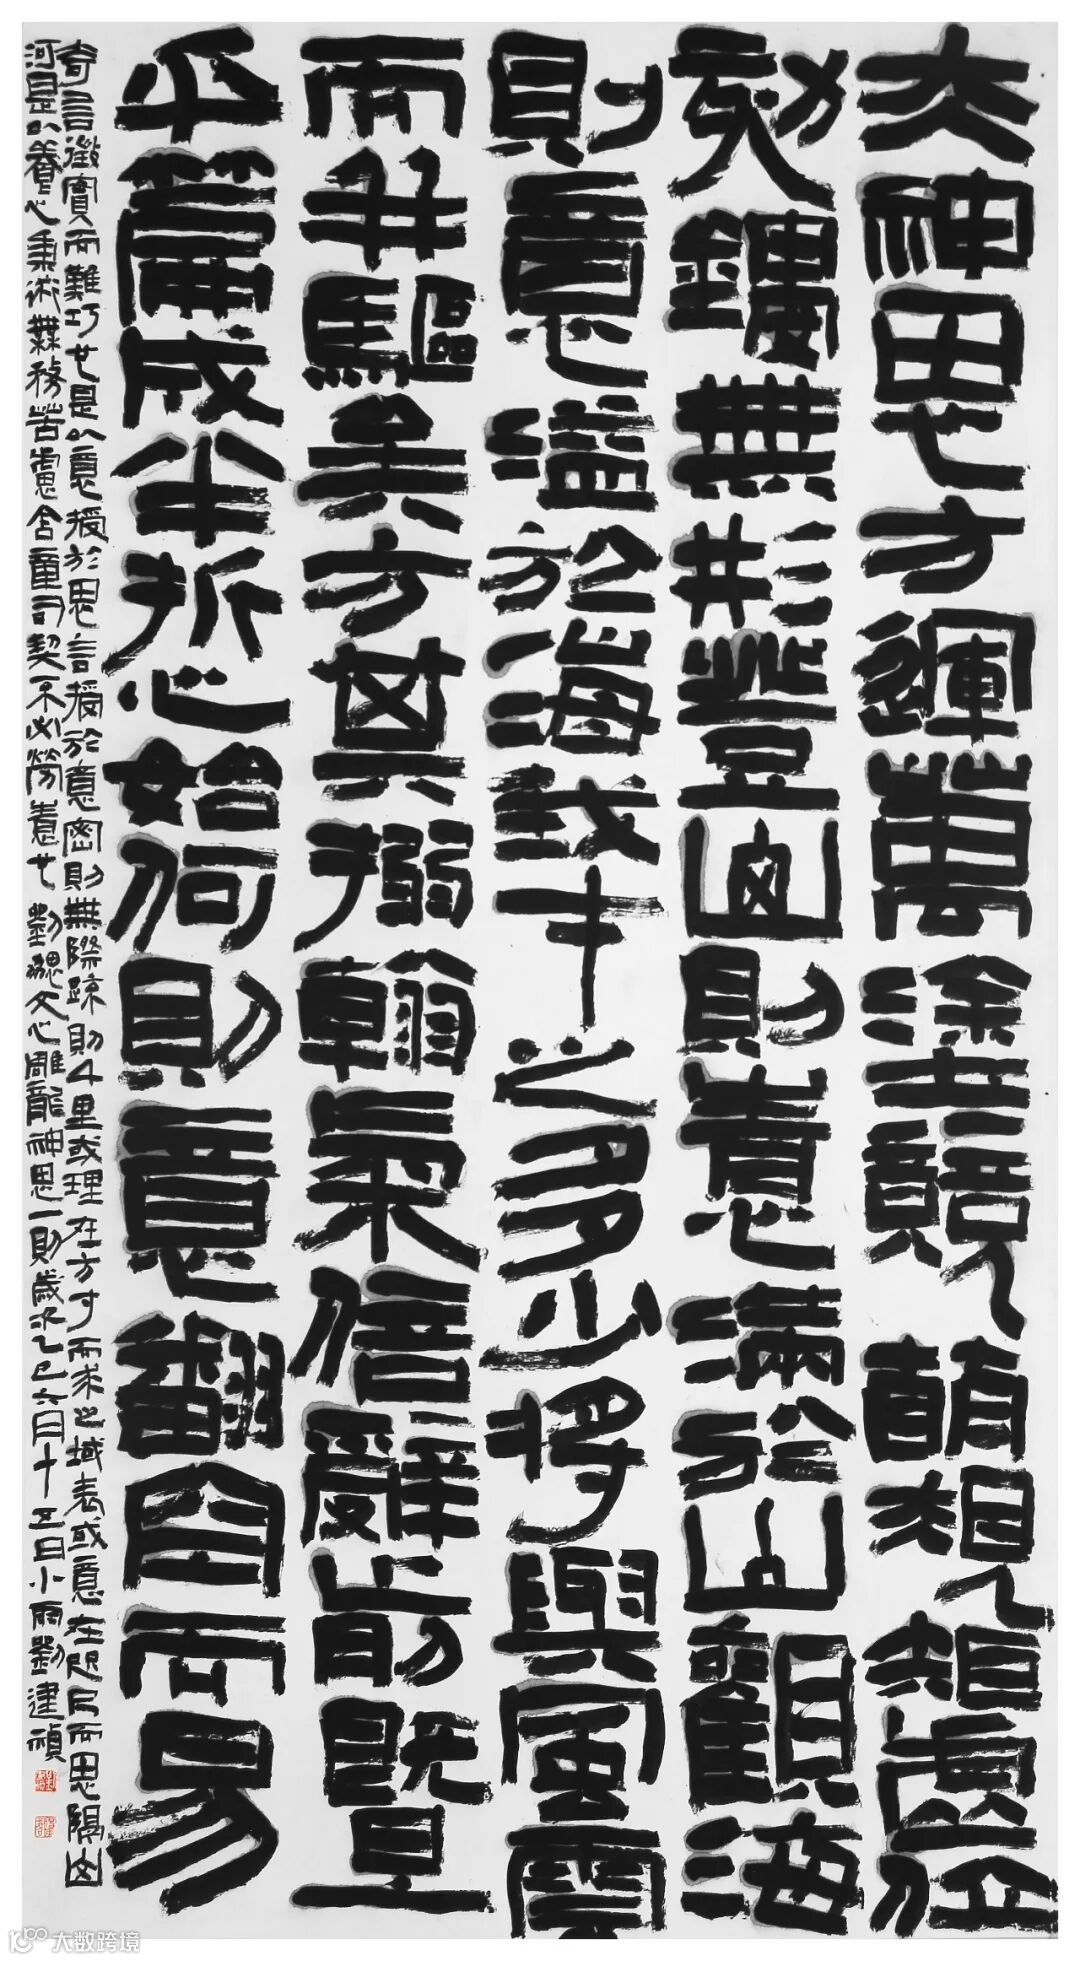 夫神思方運萬塗競萌規矩虛位
刻鏤無形登山則情滿於山觀海
則意溢於海我才之多少將與風雲
而并驅矣方其搦翰氣倍辭前暨
乎篇成半折心始何則意翻空而易
奇言徵實而難巧也是以意授於思言授於意密則無際疎則千里或理在方寸而求之域表或意在咫尺而思隔山
河是以養心秉術無務苦慮含章司契不必勞情也 劉勰文心雕龍神思一則歲次乙巳六月十五日小雨劉建禎
大数跨境